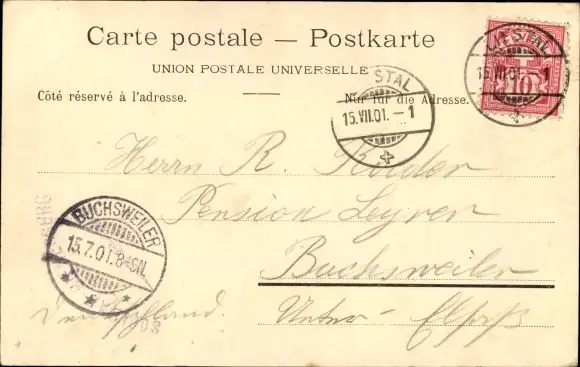 Carte postale — Postkarte
UNION POSTALE UNIVERSELLE
Côté réservé à l'adresse. Nur für die Adresse.
STAL
15.VII.01.–1
LIESTAL
15.VII.01.–1
10
Herrn R.
Pension Leyrer
Buchsweiler
Unter-Elsaß
Deutschland.
BUCHSWEILER
15.7.01.8-9N.